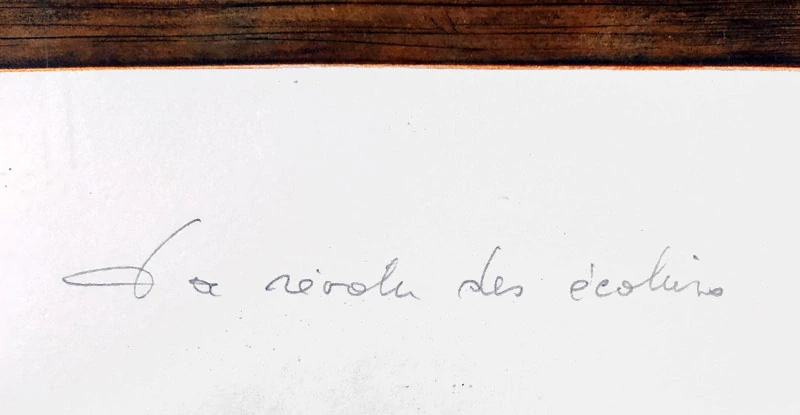 La révolte des écoliers